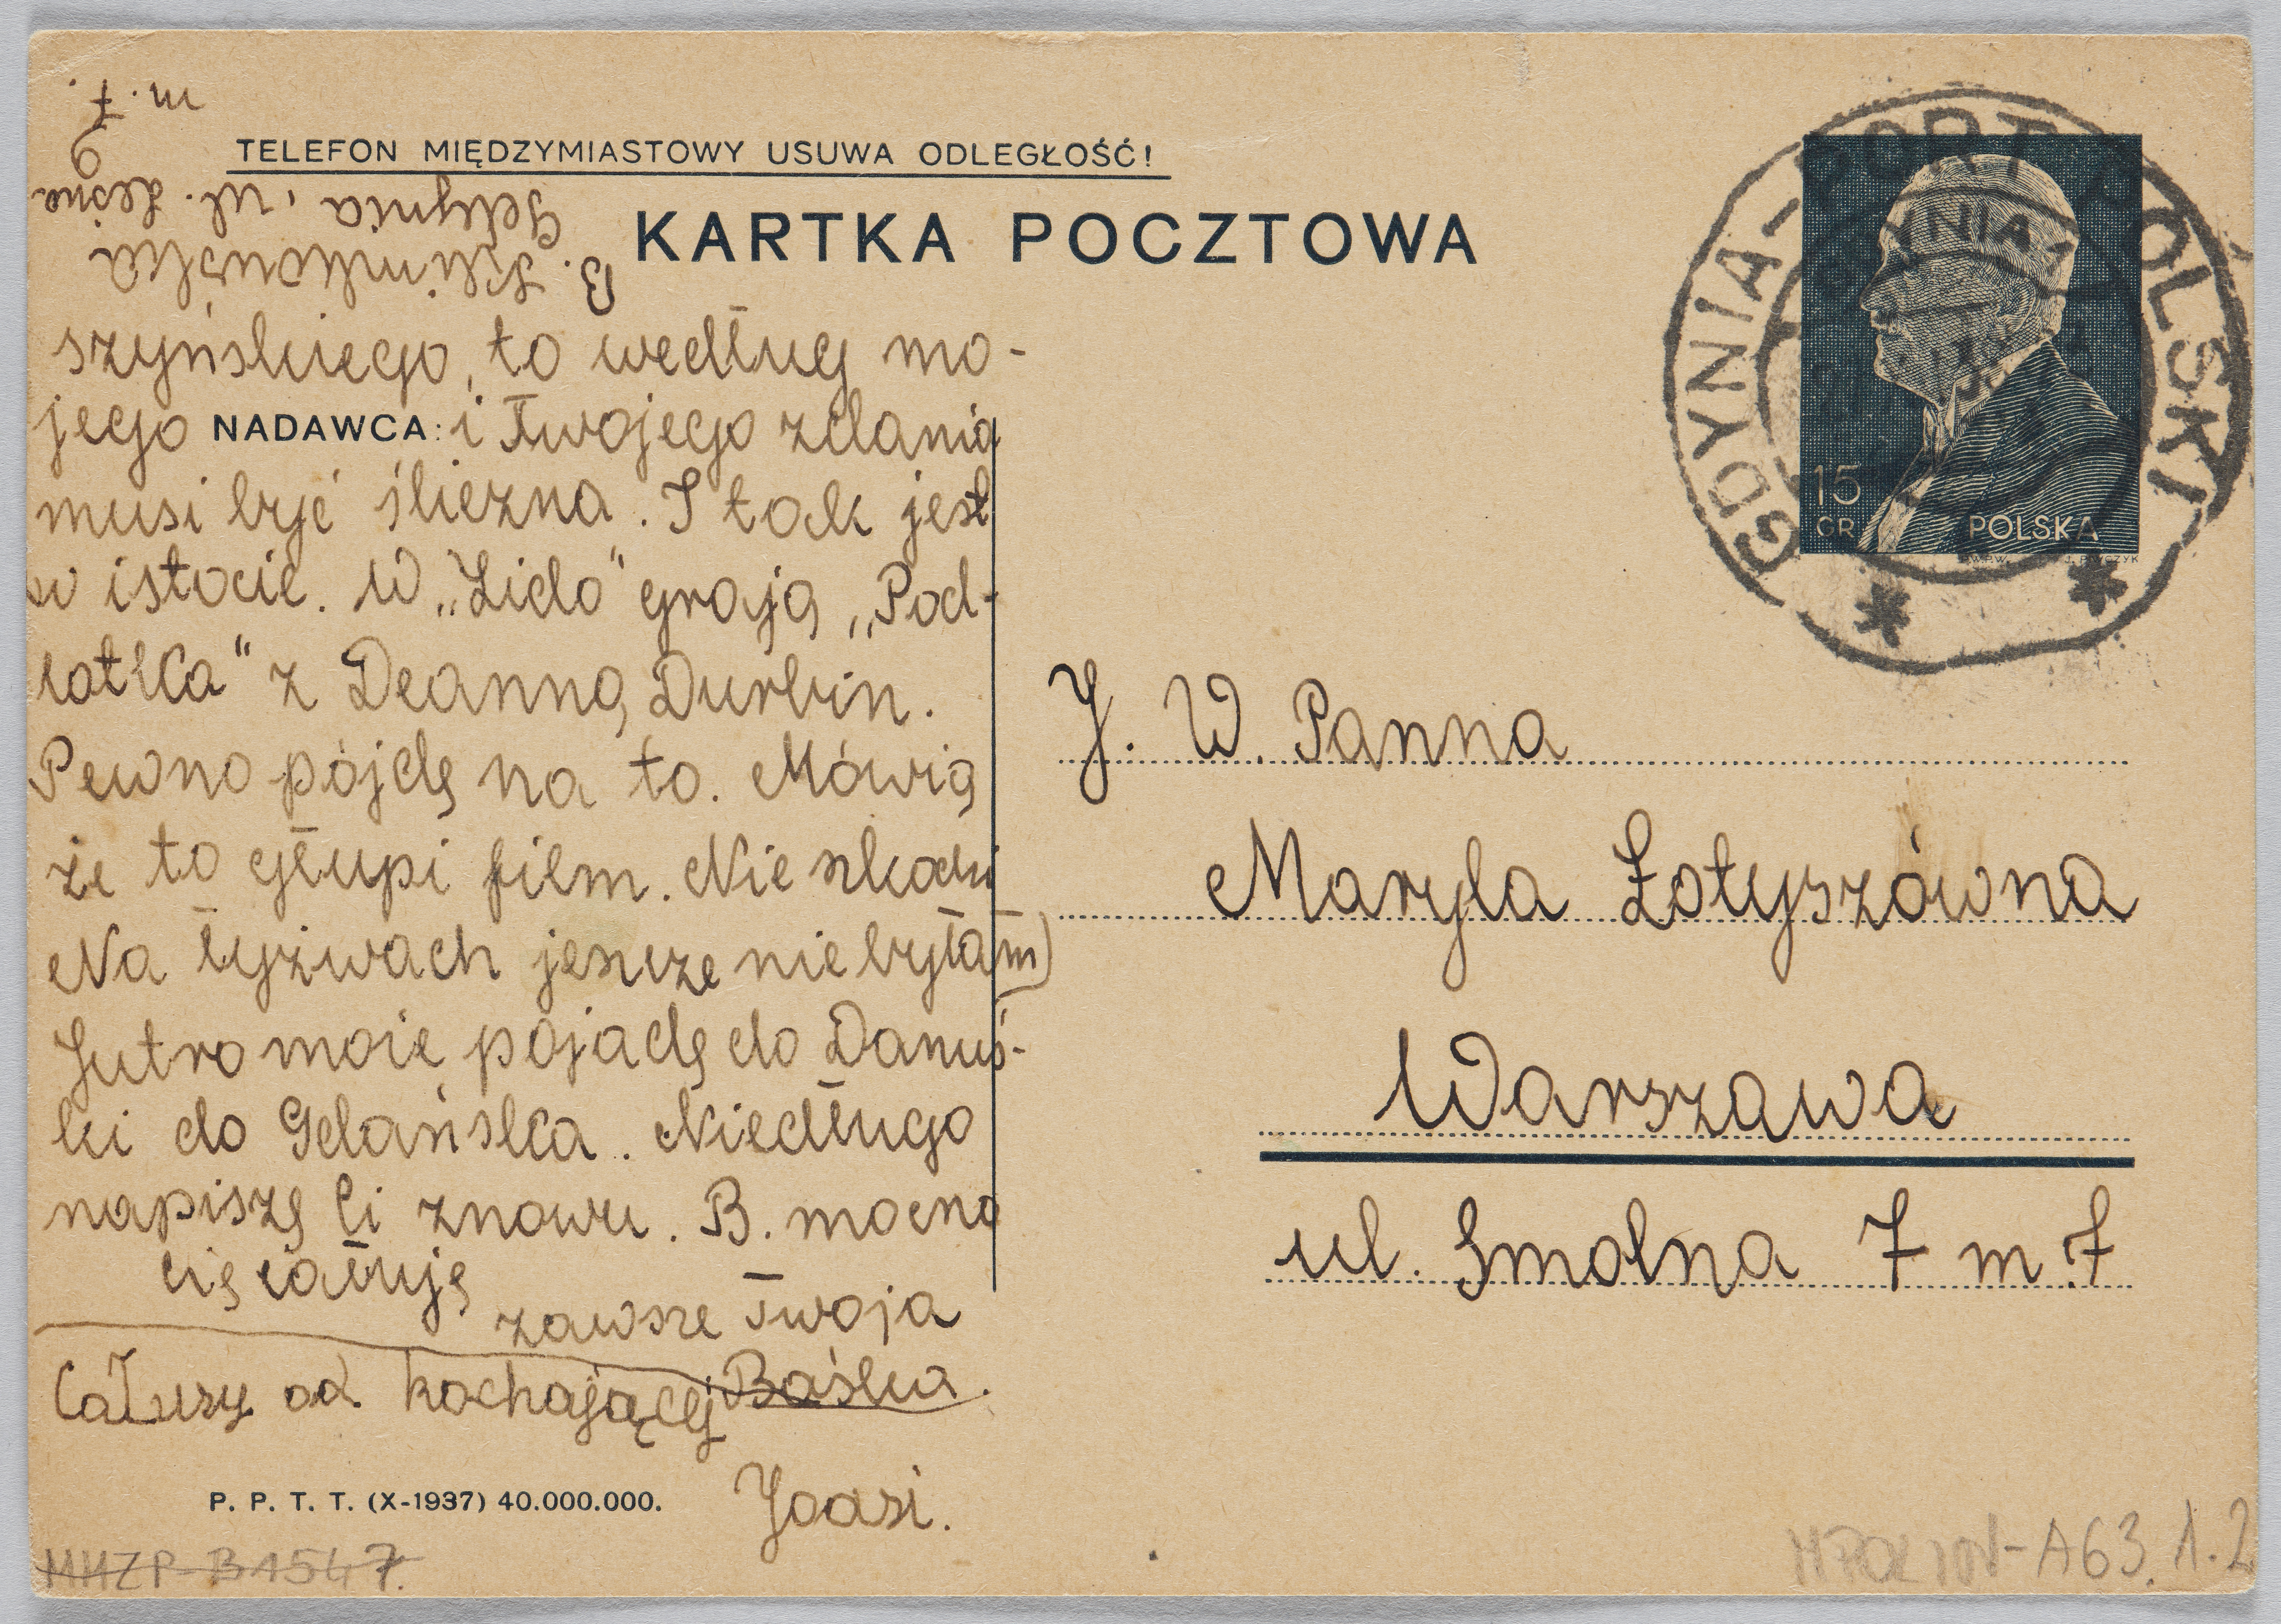 TELEFON MIĘDZYMIASTOWY USUWA ODLEGŁOŚĆ!
KARTKA POCZTOWA
B. Klimkowska
Gdynia, ul. Leśna
9
m. 7.
szyńskiego, to według mo-
jego NADAWCA: i Twojego zdania
musi być śliczna. I tak jest
w istocie. W „Lido" grają „Pod-
lotka" z Deanną Durbin.
Pewno pójdę na to. Mówią
że to głupi film. Nie szkodzi
Na łyżwach jeszcze nie byłam
Jutro może pojadę do Danuś-
ki do Gdańska. Niedługo
napiszę Ci znowu. B. mocno
Cię całuję
zawsze Twoja
Baśka.
Całusy od kochającej
Joasi.
P. P. T. T. (X-1937) 40.000.000.
MHZP-B1547.
GDYNIA-PORT POLSKI
GDYNIA 1
15
GR
POLSKA
J. W. Panna
Maryla Łotyszówna
Warszawa
ul. Smolna 7 m. 7
A63.1.2